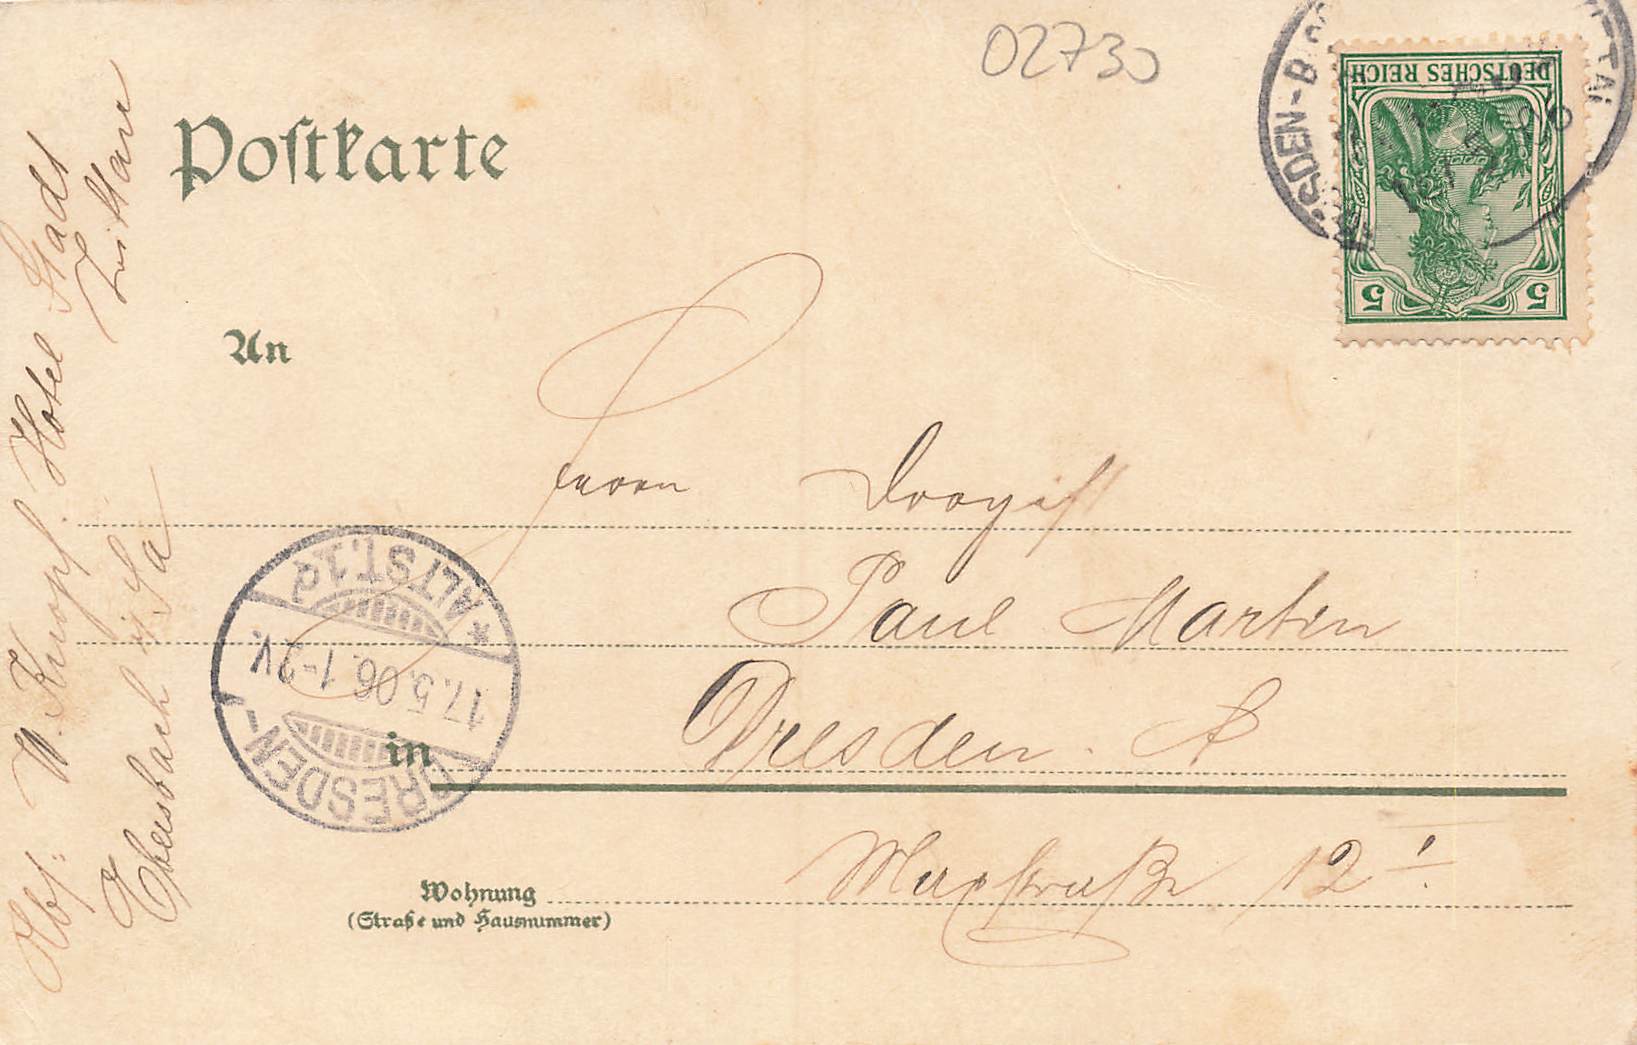 02730
Postkarte
DEUTSCHES REICH
5 5
SDEN-B
An
Herrn Drogist
Paul Martin
in Dresden. A
Wohnung Maxstraße 12 I
(Straße und Hausnummer)
DRESDEN-
17.5.06. 1-2V.
* ALTST. 1d
Abs: W. Knopf. Hotel Stadt
Zittau
Ebersbach i/Sa